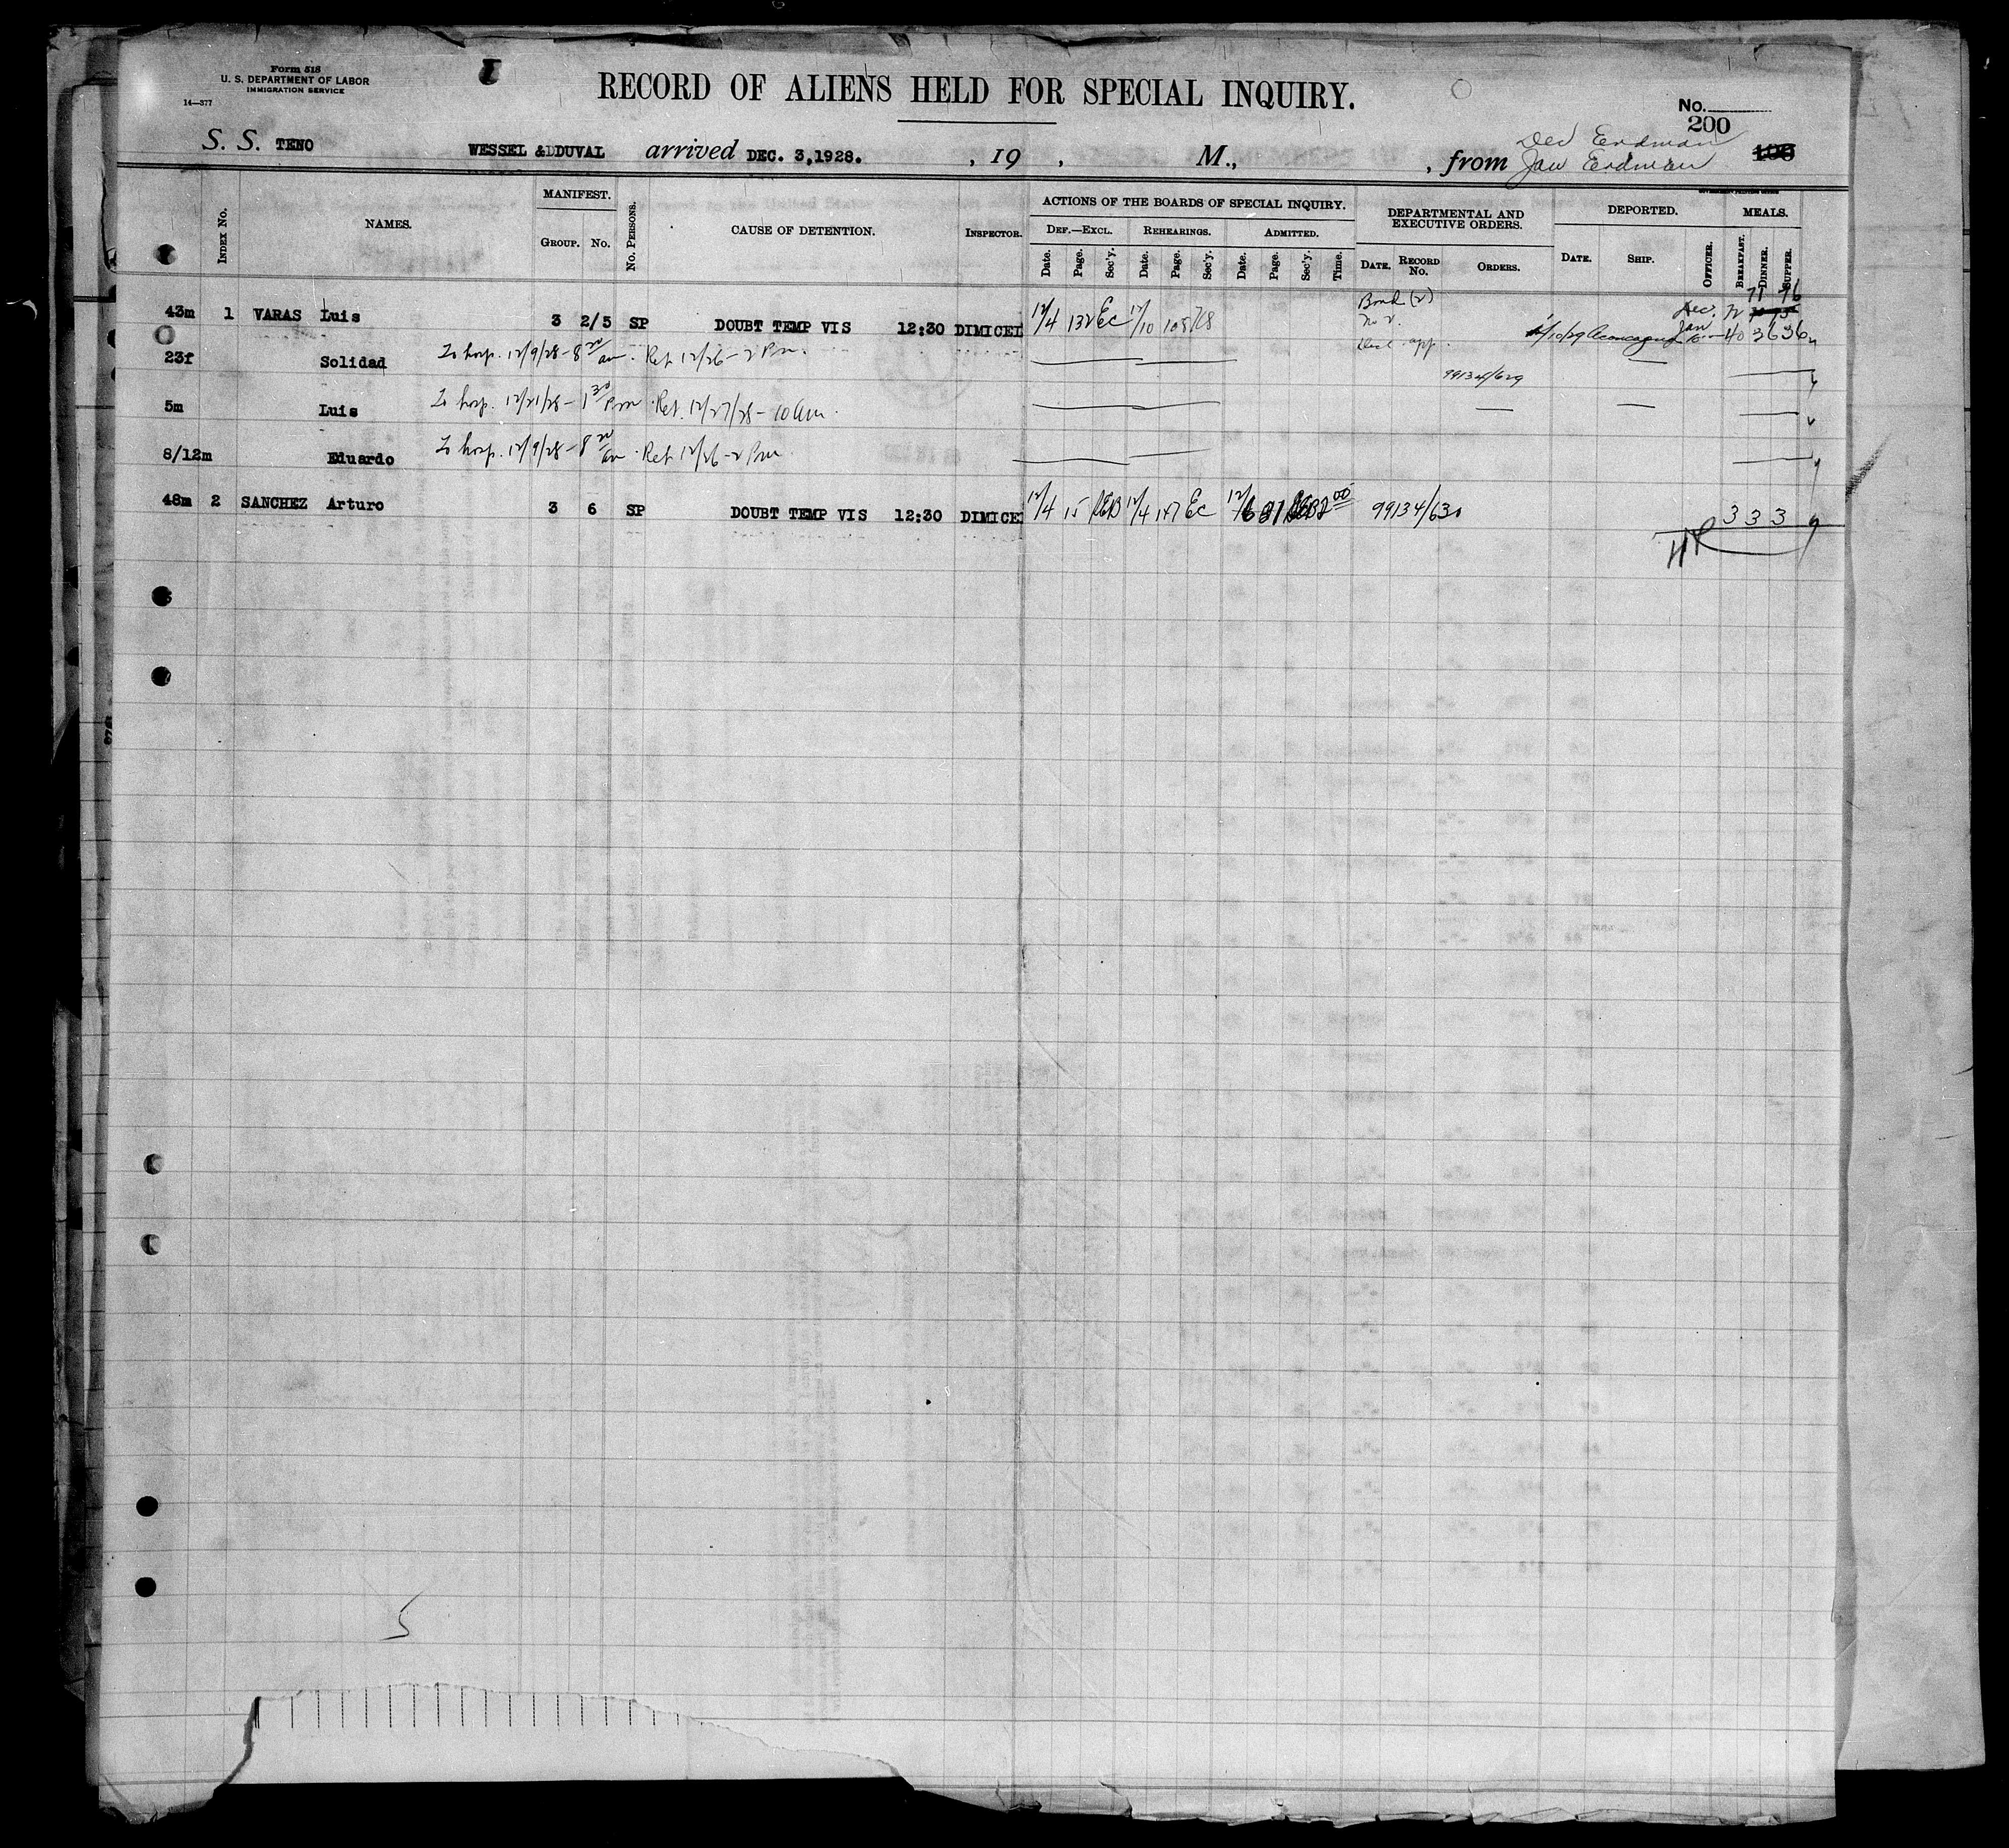 Form 518
U. S. DEPARTMENT OF LABOR
IMMIGRATION SERVICE
14—377
RECORD OF ALIENS HELD FOR SPECIAL INQUIRY.
No.
200
S. S. TENO WESSEL & DDUVAL arrived DEC. 3,1928. , 19 , M., , from Dec Erdman
Jan Erdman
INDEX No. NAMES. MANIFEST. GROUP. No. No. PERSONS. CAUSE OF DETENTION. INSPECTOR. ACTIONS OF THE BOARDS OF SPECIAL INQUIRY. DEPARTMENTAL AND EXECUTIVE ORDERS. DEPORTED. MEALS.
DEF.—EXCL. REHEARINGS. ADMITTED.
Date. Page. Sec'y. Date. Page. Sec'y. Date. Page. Sec'y. Time. DATE. RECORD No. ORDERS. DATE. SHIP. OFFICER. BREAKFAST. DINNER. SUPPER.
77 76
43m 1 VARAS Luis 3 2/5 SP DOUBT TEMP VIS 12:30 DIMICEI 12/4 132 Ec 12/10 Bond (2) Dec. 72
Jan 40 36 36
23f Solidad To hosp. 12/9/28 – 8 20 am. Ret 12/26 – 2 Pm.
99134/629
5m Luis To hosp. 12/21/28 – 1 30 Pm. Ret. 12/27/28 – 10 am.
8/12m Eduardo To hosp. 12/9/28 – 8 20 am. Ret 12/26 – 2 Pm
48m 2 SANCHEZ Arturo 3 6 SP DOUBT TEMP VIS 12:30 DIMICEI 12/4 15 12/4 147 Ec 12/6 99134/630 3 3 3